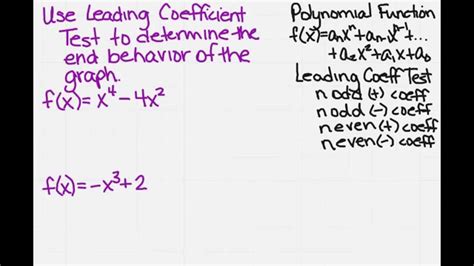 Use Leading Coefficient
Test to determine the
end behavior of the
graph.
f(x)=x⁴-4x²
f(x)=-x³+2
Polynomial Function
f(x)=aₙxⁿ+aₙ₋₁xⁿ⁻¹+...
+a₂x²+a₁x+a₀
Leading Coeff Test
n odd (+) coeff
n odd (-) coeff
n even (+) coeff
n even (-) coeff